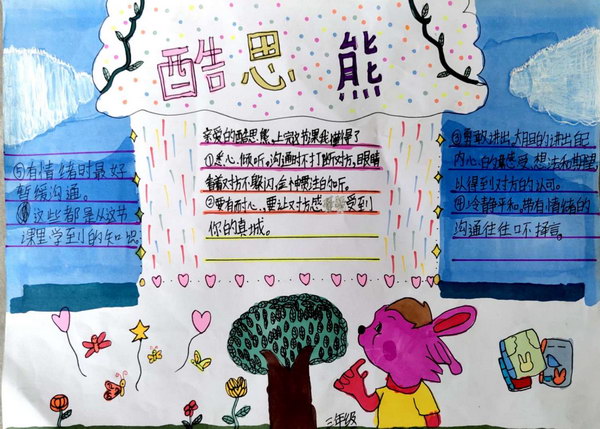 酷思熊
亲爱的酷思熊,上完这节课我懂得了
①悉心倾听。沟通时不打断对方,眼睛
看着对方不躲闪,全神贯注的倾听。
②要有耐心、要让对方感 受到
你的真城。
③勇敢讲出、大胆的讲出自己
内心的 感受、想法和期望
以得到对方的认可。
④冷静平和,带有情绪的
沟通往往口不择言。
⑤有情绪时最好
暂缓沟通。
这些都是从这节
课里学到的知识
三年级